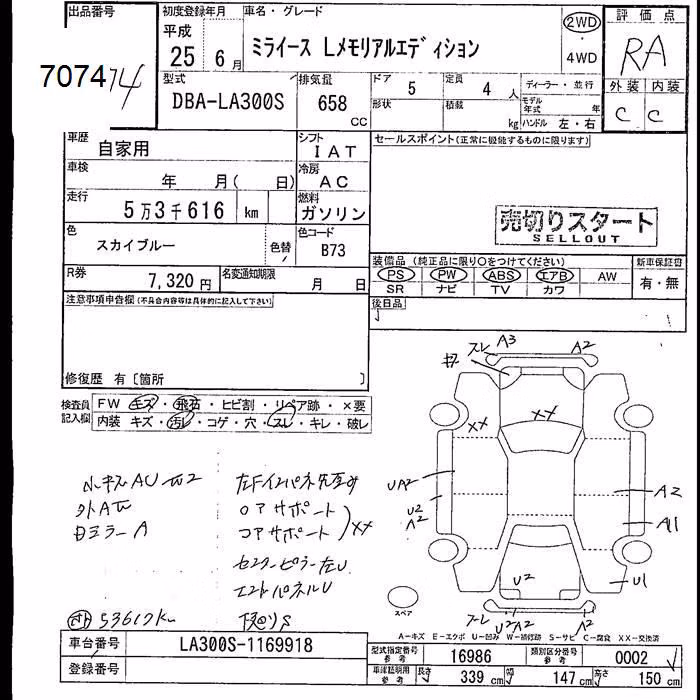 出品番号 初度登録年月 車名・グレード 2WD 評価点
707474 平成 25 6月 ミライース Lメモリアルエディション 4WD RA
型式 排気量 ドア 5 定員 4人 ディーラー・並行 外装 内装
DBA-LA300S 658 CC 形状 積載 kg モデル年式 年 ハンドル 左・右 C C
車歴 自家用 シフト IAT セールスポイント(正常に機能するものに限ります)
車検 年 月( 日) 冷房 AC
走行 5万3千616 km 燃料 ガソリン 売切りスタート
SELLOUT
色 スカイブルー 色替 色コード B73
装備品(純正品に限り○をつけてください) 新車保証書
PS PW ABS エアB AW 有・無
SR ナビ TV カワ
R券 7,320円 名変通知期限 月 日
後日品
注意事項申告欄(不具合内容等は具体的に記入して下さい)
修復歴 有[箇所 ]
検査員記入欄 FW キズ・飛石・ヒビ割・リペア跡・×要
内装 キズ・汚レ・コゲ・穴・スレ・キレ・破レ
スレ A3 A2
XX XX
UA2 A2
U2 A2 A11
U1
U2
スレ U2A2 A2
外A
左ミラーA
ロアサポート
コアサポート XX
センターピラー左U
エンドパネルU
53617km
スペア
A-キズ E-エクボ U-凹み W-補修跡 S-サビ C-腐食 XX-交換済
車台番号 LA300S-1169918 型式指定番号 参考 16986 類別区分番号 参考 0002
登録番号 車庫証明用 参考 長さ 339cm 幅 147cm 高さ 150cm